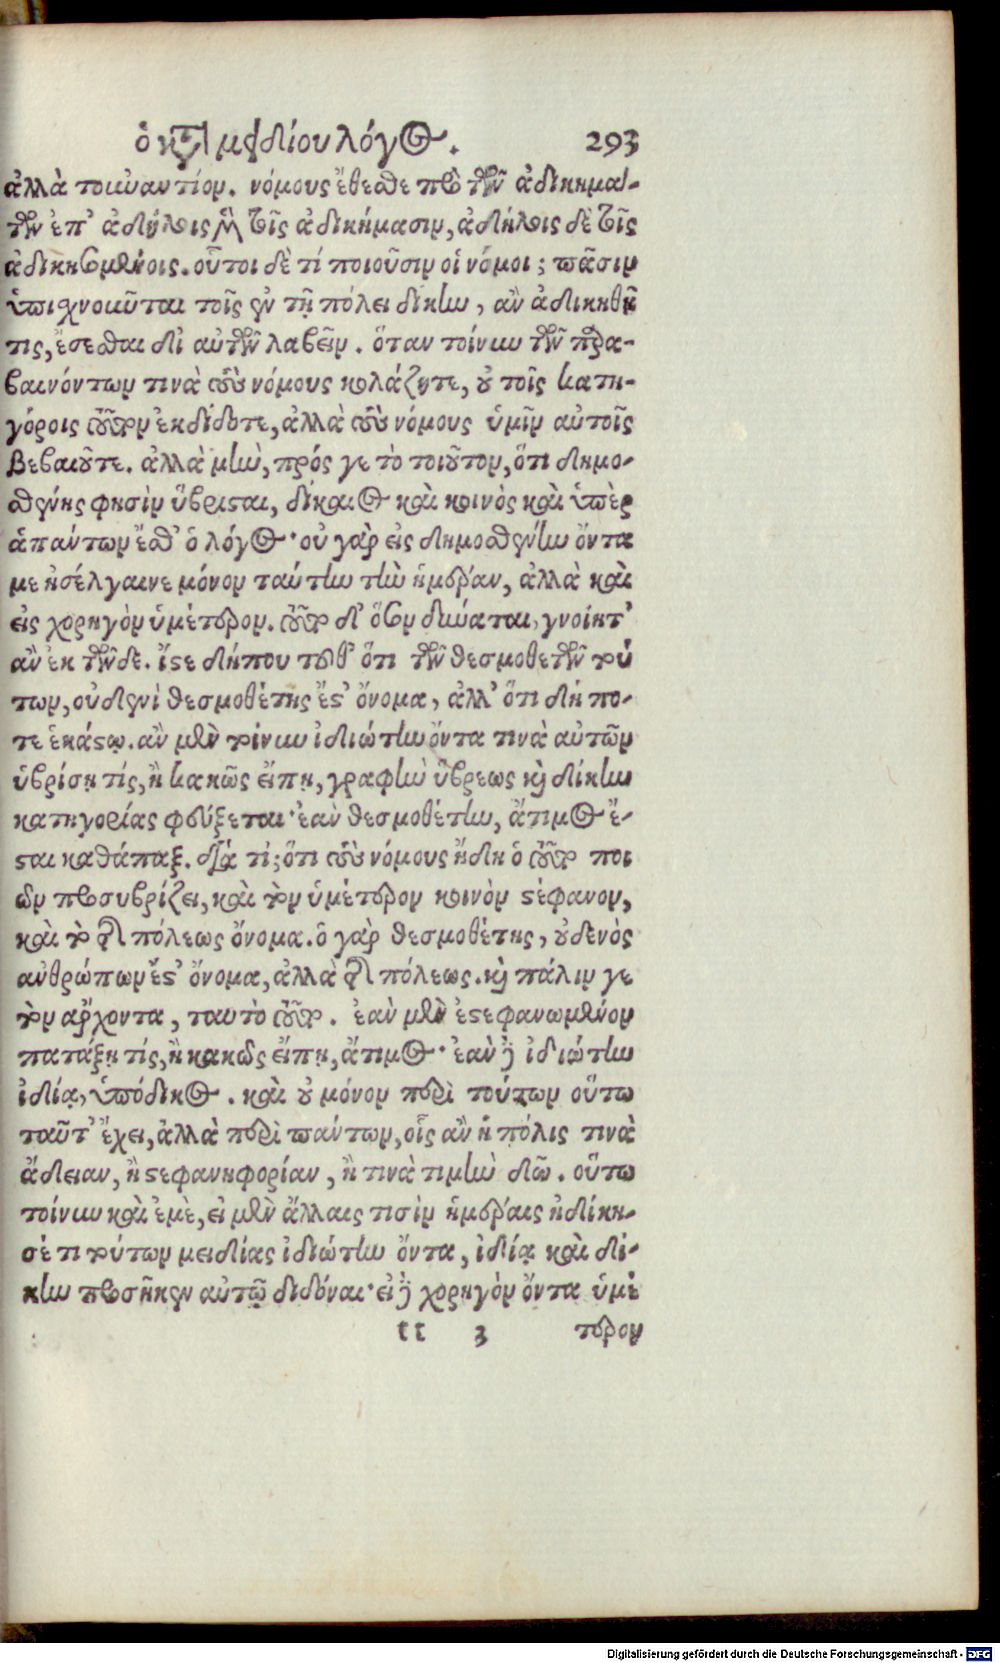 ὁ κατὰ μειδίου λόγος. 293
ἀλλὰ τοὐναντίον. νόμους ἔθεσθε πρὸ τῶν ἀδικημά-
των ἐπ' ἀδήλοις μὲν τοῖς ἀδικήμασιν, ἀδήλοις δὲ τοῖς
ἀδικησομένοις. οὗτοι δὲ τί ποιοῦσιν οἱ νόμοι; πᾶσιν
ὑπισχνοῦνται τοῖς ἐν τῇ πόλει δίκην, ἂν ἀδικηθῇ
τις, ἔσεσθαι δι' αὐτῶν λαβεῖν. ὅταν τοίνυν τῶν παρα-
βαινόντων τινὰ τοὺς νόμους κολάζητε, οὐ τοῖς κατη-
γόροις τοῦτον ἐκδίδοτε, ἀλλὰ τοὺς νόμους ὑμῖν αὐτοῖς
βεβαιοῦτε. ἀλλὰ μὴν, πρός γε τὸ τοιοῦτον, ὅτι δημο-
σθένης φησὶν ὕβρισται, δίκαιος καὶ κοινὸς καὶ ὑπὲρ
ἁπάντων ἔσθ' ὁ λόγος· οὐ γὰρ εἰς δημοσθένην ὄντα
με ἠσέλγαινε μόνον ταύτην τὴν ἡμέραν, ἀλλὰ καὶ
εἰς χορηγὸν ὑμέτερον. τοῦτο δ' ὅσον δύναται, γνοίητ'
ἂν ἐκ τῶνδε. ἴστε δήπου τοῦθ' ὅτι τῶν θεσμοθετῶν τού
των, οὐδενὶ θεσμοθέτης ἔστ' ὄνομα, ἀλλ' ὅτι δή πο-
τε ἑκάστῳ. ἂν μὲν τοίνυν ἰδιώτην ὄντα τινὰ αὐτῶν
ὑβρίσῃ τίς, ἢ κακῶς εἴπῃ, γραφὴν ὕβρεως καὶ δίκην
κατηγορίας φεύξεται· ἐὰν θεσμοθέτην, ἄτιμος ἔ-
σται καθάπαξ. διὰ τί; ὅτι τοὺς νόμους ἤδη ὁ τοῦτο ποι
ῶν προσυβρίζει, καὶ τὸν ὑμέτερον κοινὸν στέφανον,
καὶ τὸ τῆς πόλεως ὄνομα. ὁ γὰρ θεσμοθέτης, οὐδενὸς
ἀνθρώπων ἔστ' ὄνομα, ἀλλὰ τῆς πόλεως. καὶ πάλιν γε
τὸν ἄρχοντα, ταυτὸ τοῦτο. ἐὰν μὲν ἐστεφανωμένον
πατάξῃ τίς, ἢ κακῶς εἴπῃ, ἄτιμος· ἐὰν δὲ ἰδιώτην
ἰδίᾳ, ὑπόδικος. καὶ οὐ μόνον περὶ τούτων οὕτω
ταῦτ' ἔχει, ἀλλὰ περὶ πάντων, οἷς ἂν ἡ πόλις τινὰ
ἄδειαν, ἢ στεφανηφορίαν, ἢ τινὰ τιμὴν δῶ. οὕτω
τοίνυν καὶ ἐμὲ, εἰ μὲν ἄλλαις τισὶν ἡμέραις ἠδίκη-
σέ τι τούτων μειδίας ἰδιώτην ὄντα, ἰδίᾳ καὶ δί-
κην προσῆκεν αὐτῷ διδόναι· εἰ δὲ χορηγὸν ὄντα ὑμέ
tt 3 τερον
Digitalisierung gefördert durch die Deutsche Forschungsgemeinschaft - DFG